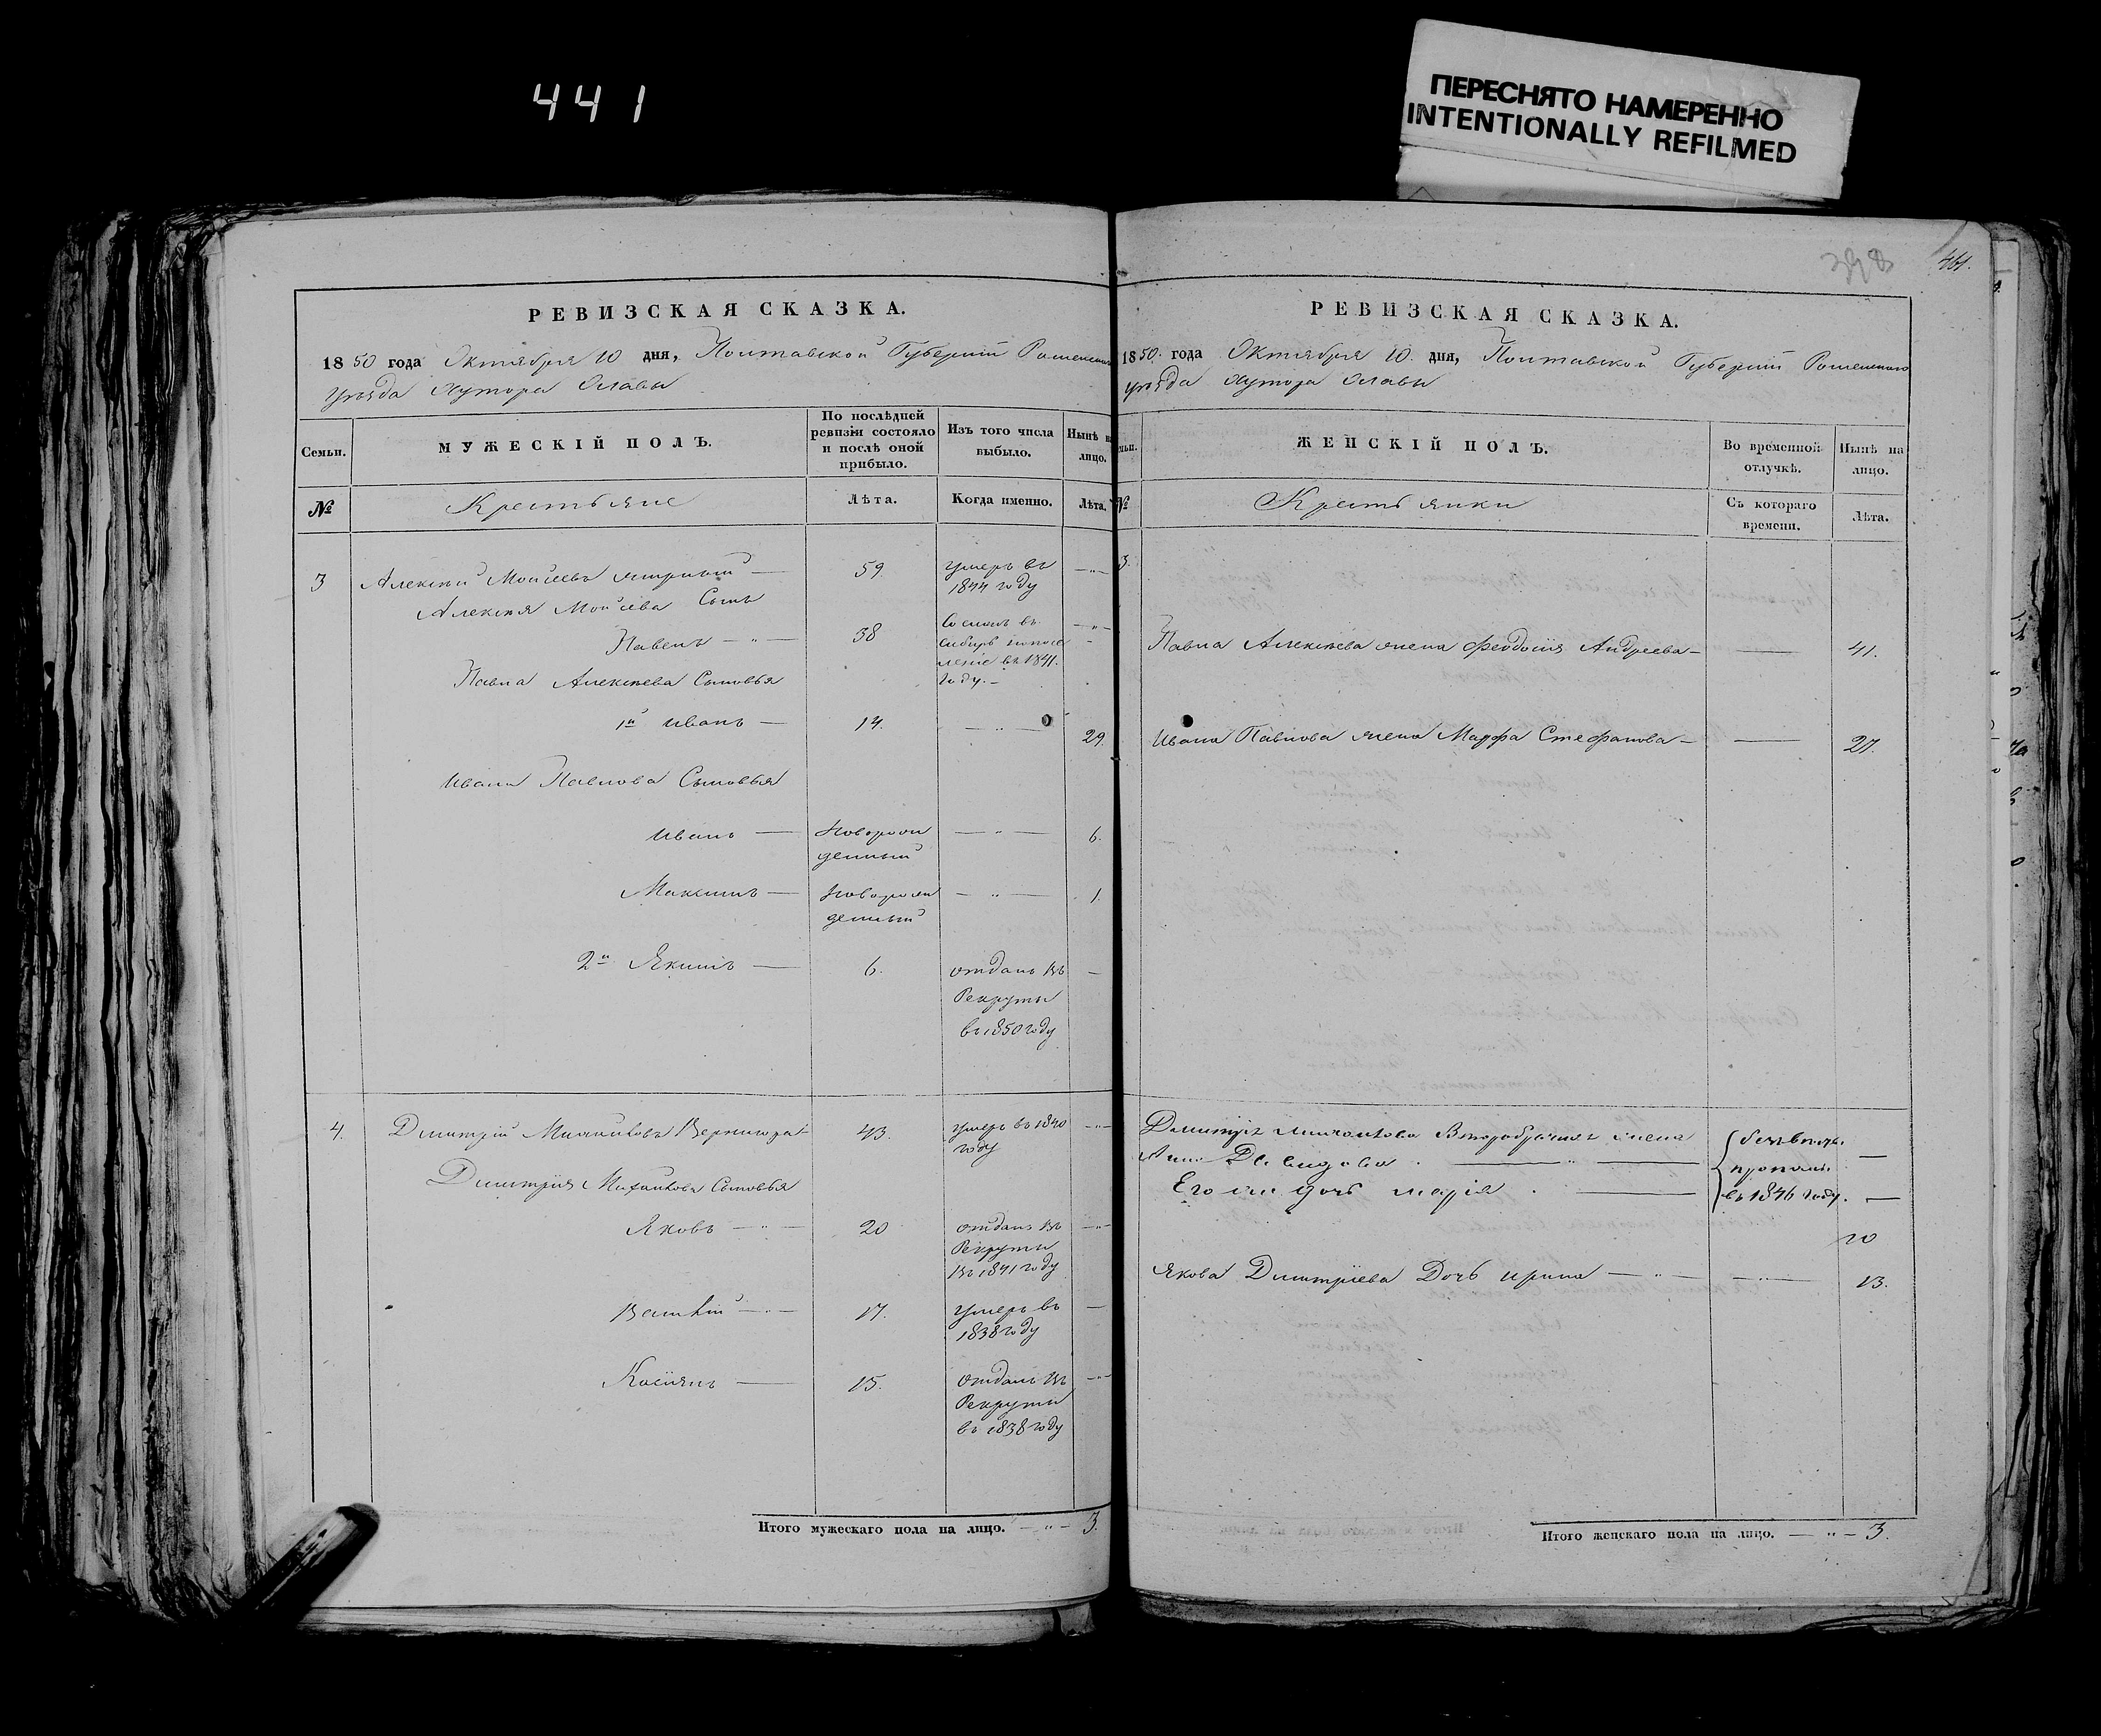 441
ПЕРЕСНЯТО НАМЕРЕННО
INTENTIONALLY REFILMED
461.
РЕВИЗСКАЯ СКАЗКА.
1850 года Октября 10 дня, Полтавской Губерніи Роменскаго
уѣзда Хутора Славы
Семьи.
МУЖЕСКІЙ ПОЛЪ.
По послѣдней ревизіи состояло и послѣ оной прибыло.
Изъ того числа выбыло.
Нынѣ на лицо.
№
Крестьяне
Лѣта.
Когда именно.
Лѣта.
3 Алексѣй Моисеевъ — 59 умеръ въ 1844 году
Алексѣя Моисеева Сынъ
Павелъ — 38 Сосланъ въ Сибирь на поселеніе въ 1841. году.
Павла Алексѣева Сыновья
1й Иванъ — 14. — 29.
Ивана Павлова Сыновья
Иванъ — Новорожденный — 6.
Максимъ — Новорожденный — 1.
2й Якимъ — 6. отданъ въ Рекруты въ 1850 году
4. Дмитрій Михайловъ Вернигора 43. умеръ въ 1840 году
Дмитрія Михайлова Сыновья
Яковъ — 20 отданъ въ Рекруты въ 1841 году
Василій — 17. умеръ въ 1838 году
Касіянъ — 15. отданъ въ Рекруты въ 1838 году
Итого мужескаго пола на лицо. — 3.
РЕВИЗСКАЯ СКАЗКА.
1850. года Октября 10. дня, Полтавской Губерніи Роменскаго
уѣзда Хутора Славы
ЖЕНСКІЙ ПОЛЪ.
Во временной отлучкѣ.
Нынѣ на лицо.
№
Крестьянки
Съ котораго времени.
Лѣта.
3.
Павла Алексѣева жена Феодосія Андреева — 41.
Ивана Павлова жена Марфа Стефанова — 27.
Дмитрія Михайлова Второбрачная жена
Анна Давидова
Его же дочь Марія
въ 1846 году.
10
Якова Дмитріева Дочь Ирина — 13.
Итого женскаго пола на лицо. — 3.